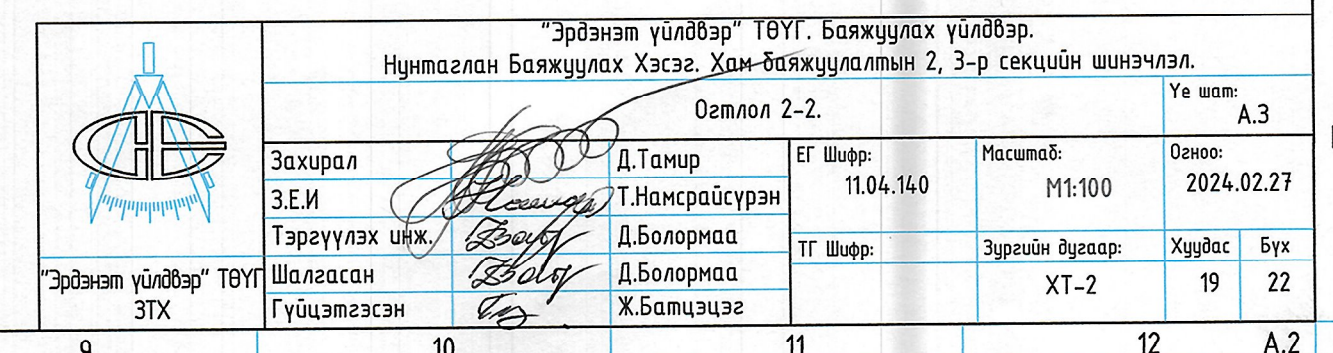 "Эрдэнэт үйлдвэр" ТӨҮГ. Баяжуулах үйлдвэр.
Нунтаглан Баяжуулах Хэсэг. Хам-баяжуулалтын 2, 3-р секцийн шинэчлэл.
Огтлол 2-2.
Үе шат:
А.3
Захирал
Д.Тамир
З.Е.И
Т.Намсрайсүрэн
Тэргүүлэх инж.
Д.Болормаа
Шалгасан
Д.Болормаа
Гүйцэтгэсэн
Ж.Батцэцэг
"Эрдэнэт үйлдвэр" ТӨҮГ
ЗТХ
ЕГ Шифр:
11.04.140
Масштаб:
М1:100
Огноо:
2024.02.27
ТГ Шифр:
Зургийн дугаар:
ХТ-2
Хуудас
19
Бүх
22
9
10
11
12
А.2